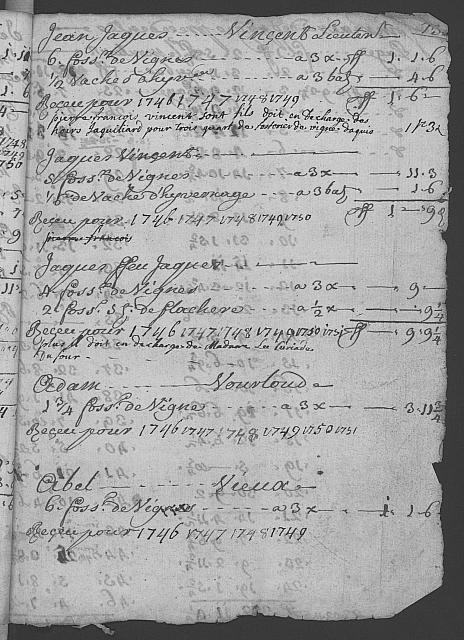 Jean Jaques Vincent Lieuten.t
6. foss.rs de Vignes a 3 x ff 1. 1. 6
1/2 Vaches d'hyver a 3 batz 4. 6
Reçeu pour 1746 1747 1748 1749 ff 1. 6
pierre francois vincent sont fils doit en decharge des
hoirs Jaquiliard pour Trois quart de fossorier de vigne
Jaques Vincent
5 foss.rs de Vignes a 3 x 11. 3
1/2 de Vaches d'hyvernage a 3 batz 1. 6
Reçeu pour 1746 1747 1748 1749 1750 ff 1 9
pierre francois
Jaques ffeu Jaques
4 foss.rs de Vignes a 3 x 9
2 foss.rs de flachere a 1/2 x 9 1/4
Reçeu pour 1746 1747 1748 1749 1750 1751 ff 9. 9 1/4
plus il doit en decharge de Madame
du four
Adam Vourloud
1 3/4 foss.rs de Vignes a 3 x 3. 11 3/4
Reçeu pour 1746 1747 1748 1749 1750 1751
Abel Vieux
6. foss.rs de Vignes a 3 x 1. 1. 6
Reçeu pour 1746 1747 1748 1749